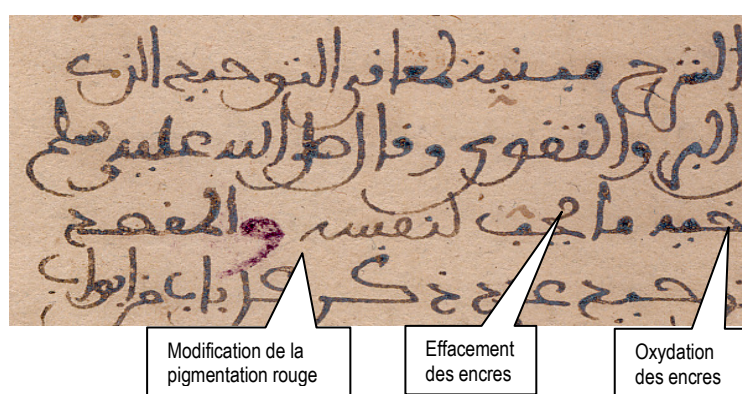 الشرح مبينة لمعاني التوحيد الذي
البر والتقوى وقال صلى الله عليه وسلم
خيه ما يحب لنفسه و
باب من ابواب
Modification de la
pigmentation rouge
Effacement
des encres
Oxydation
des encres